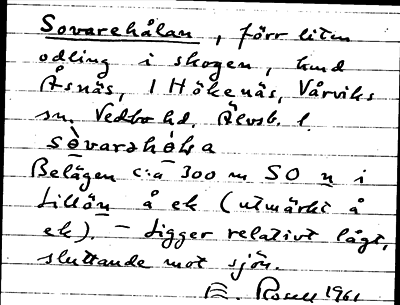 Sovarehålan, förr liten
odling i skogen, hmd
Åsnäs, 1 Hökenäs, Vårviks
sn. Vedbo hd, Älvsb. l.
sòvarahóla
Belägen c:a 300 m SO n i
Lillön å ek (utmärkt å
ek). – Ligger relativt lågt,
sluttande mot sjön.
1961